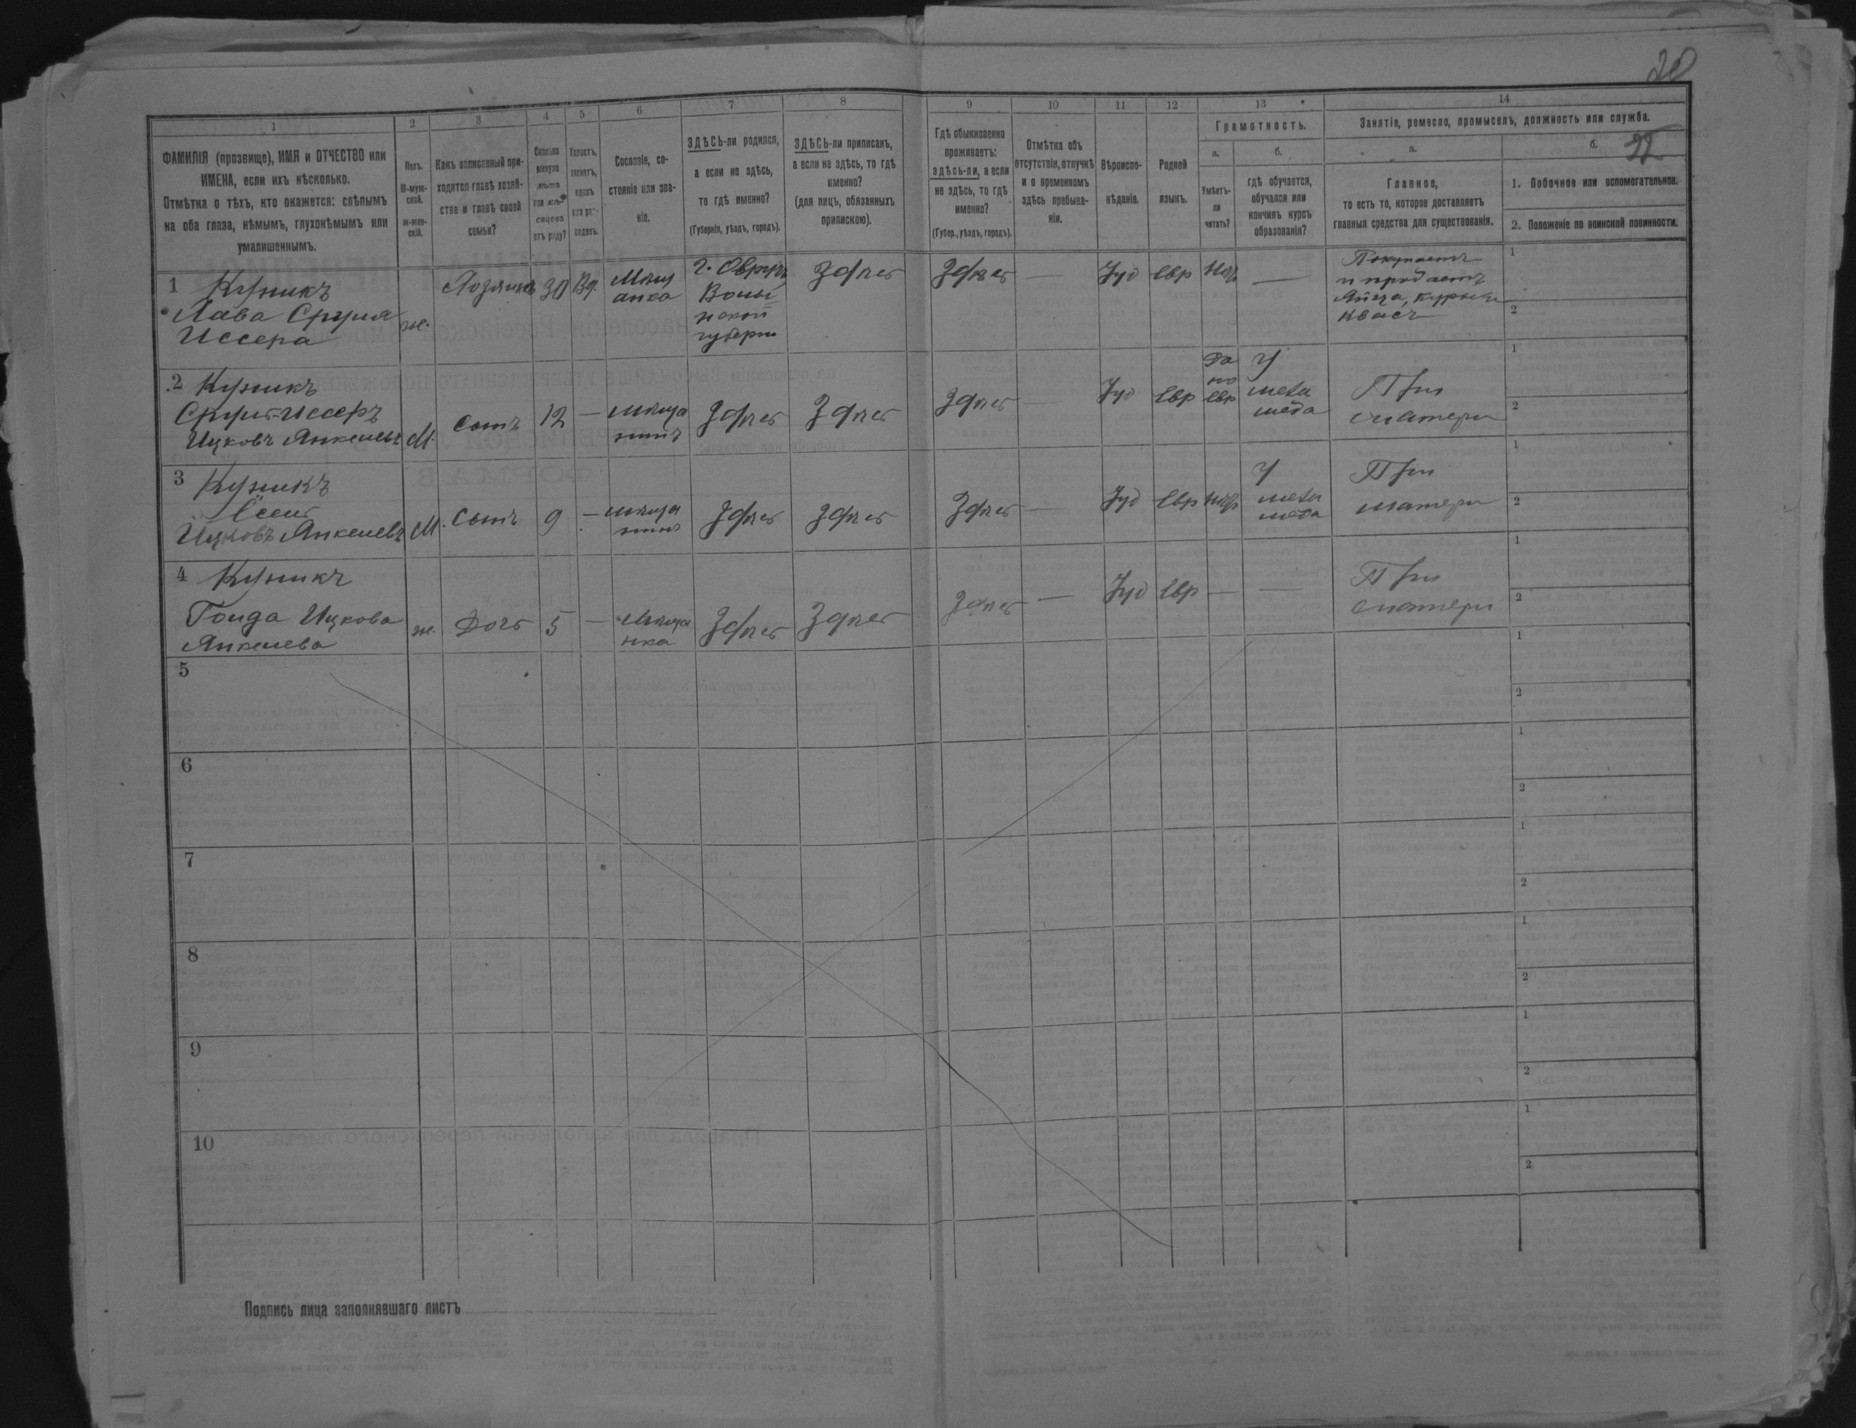 20
1
2
3
4
5
6
7
8
9
10
11
12
13
14
ФАМИЛІЯ (прозвище), ИМЯ и ОТЧЕСТВО или
ИМЕНА, если ихъ нѣсколько.
Отмѣтка о тѣхъ, кто окажется: слѣпымъ
на оба глаза, нѣмымъ, глухонѣмымъ или
умалишеннымъ.
Полъ.
М-муж-
ской.
Ж-жен-
скій.
Какъ записанный при-
ходится главѣ хозяй-
ства и главѣ своей
семьи?
Сколько
минуло
лѣтъ
или мѣ-
сяцевъ
отъ роду?
Холостъ,
женатъ,
вдовъ
или раз-
веденъ.
Сословіе, со-
стояніе или зва-
ніе.
ЗДѢСЬ-ли родился,
а если не здѣсь,
то гдѣ именно?
(Губернія, уѣздъ, городъ).
ЗДѢСЬ-ли приписанъ,
а если не здѣсь, то гдѣ
именно?
(для лицъ, обязанныхъ
припискою).
Гдѣ обыкновенно
проживаетъ:
здѣсь-ли, а если
не здѣсь, то гдѣ
именно?
(Губер., уѣздъ, городъ).
Отмѣтка объ
отсутствіи, отлучкѣ
и о временномъ
здѣсь пребыва-
ніи.
Вѣроиспо-
вѣданіе.
Родной
языкъ.
Грамотность.
а.
Умѣетъ-
ли
читать?
б.
гдѣ обучается,
обучался или
кончилъ курсъ
образованія?
Занятіе, ремесло, промыселъ, должность или служба.
а.
Главное,
то есть то, которое доставляетъ
главныя средства для существованія.
б.
22
1. Побочное или вспомогательное.
2. Положеніе по воинской повинности.
1 Куникъ
Иссера
ж.
30
Вд.
г. Овручъ
губерн
Здѣсь
Здѣсь
—
Іуд
евр
—
Покупаетъ
и продаетъ
Яйца, курын
квасъ
1
2
2 Куникъ
Сруль-Иссеръ
Ицковъ Янкелевъ
М.
Сынъ
12
—
мѣща
нинъ
Здѣсь
Здѣсь
Здѣсь
—
Іуд
евр
Да
по
евр
У
мела
меда
При
матери
1
2
3 Куникъ
Ицковъ Янкелевъ
М.
Сынъ
9
—
мѣща
нинъ
Здѣсь
Здѣсь
Здѣсь
—
Іуд
евр
У
При
матери
1
2
4 Куникъ
Ицкова
Янкелева
ж.
Дочь
5
—
Мѣща
нка
Здѣсь
Здѣсь
Здѣсь
—
Іуд
евр
—
—
При
матери
1
2
5
1
2
6
1
2
7
1
2
8
1
2
9
1
2
10
1
2
Подпись лица заполнявшаго листъ